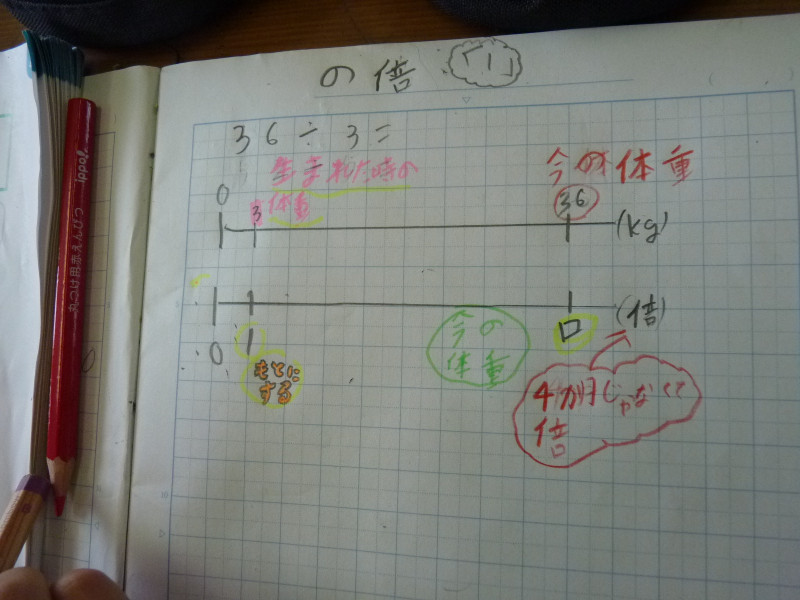 の倍「1」
36÷3=
生まれた時の
体重
今の体重
0
3
36
(kg)
0
1
□
(倍)
もとに
する
今の
体重
4か月じゃなくて
倍